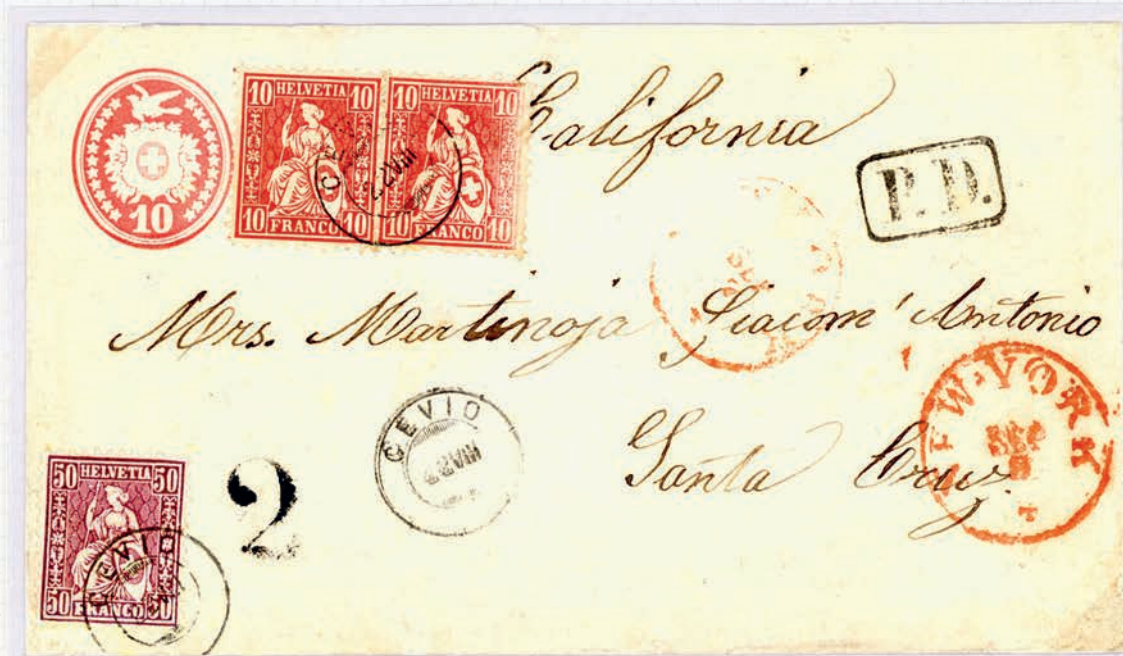 10 HELVETIA 10
10 FRANCO 10
10 HELVETIA 10
10 FRANCO 10
10
California
P.D.
Mrs. Martinoja Giacom' Antonio
Santa Cruz
NEW YORK
SEP
CEVIO
VIII
50 HELVETIA 50
50 FRANCO 50
CEVIO
2